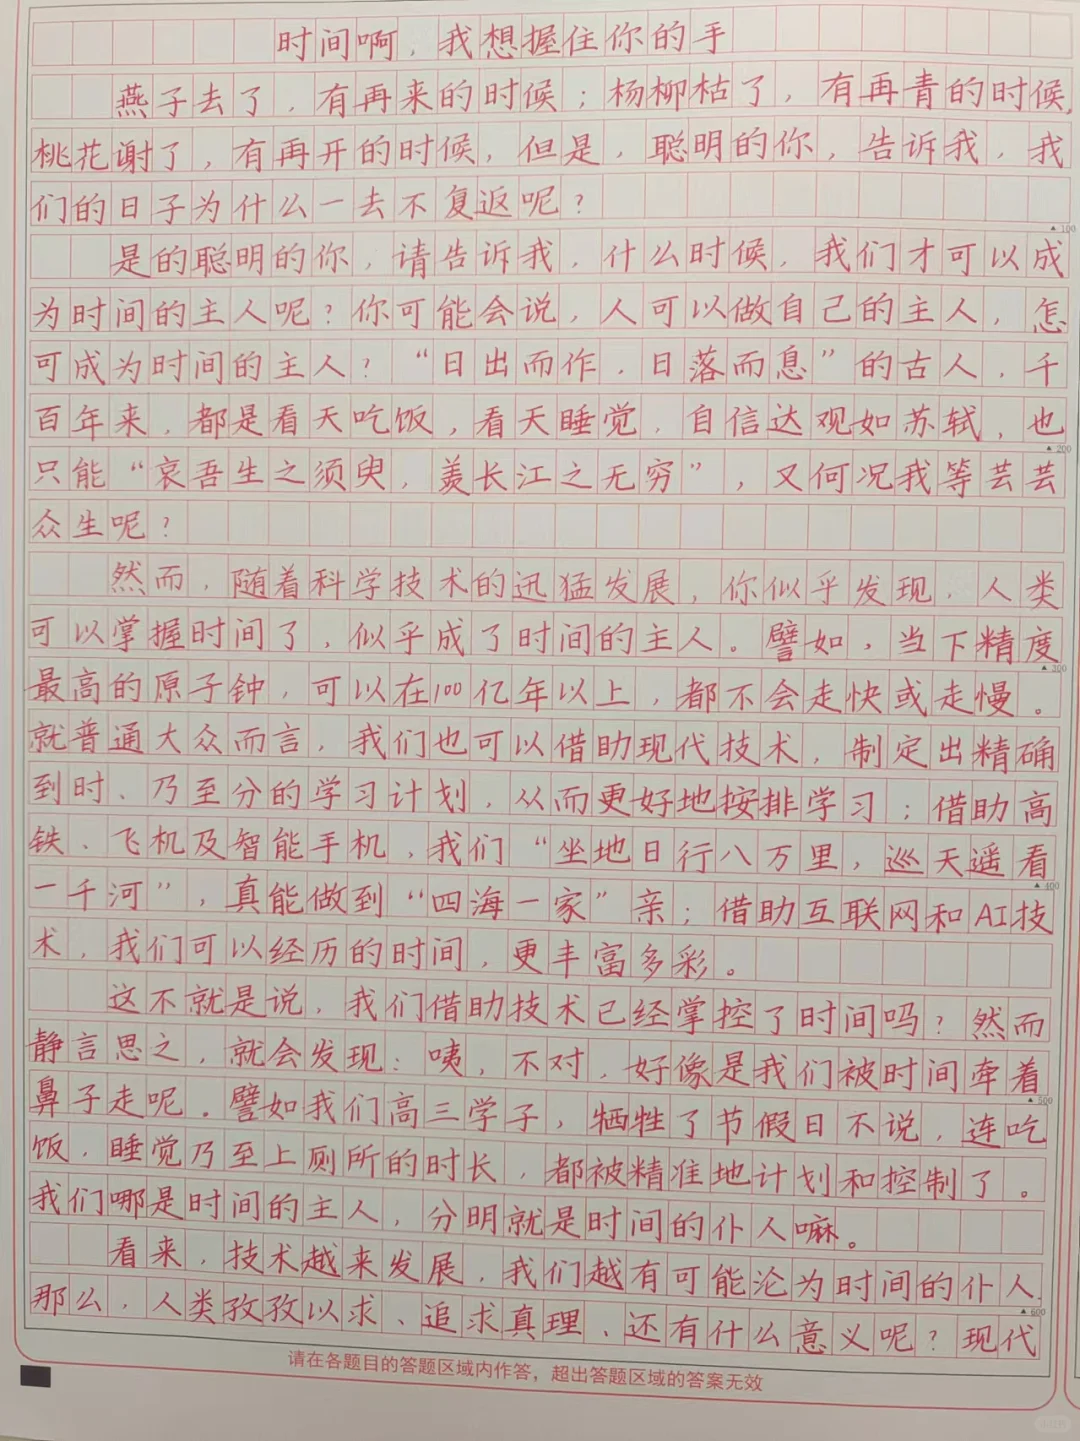 时间啊，我想握住你的手
燕子去了，有再来的时候；杨柳枯了，有再青的时候，
桃花谢了，有再开的时候，但是，聪明的你，告诉我，我
们的日子为什么一去不复返呢？
▲100
是的聪明的你，请告诉我，什么时候，我们才可以成
为时间的主人呢？你可能会说，人可以做自己的主人，怎
可成为时间的主人？“日出而作，日落而息”的古人，千
百年来，都是看天吃饭，看天睡觉，自信达观如苏轼，也
▲200
只能“哀吾生之须臾，羡长江之无穷”，又何况我等芸芸
众生呢？
然而，随着科学技术的迅猛发展，你似乎发现，人类
可以掌握时间了，似乎成了时间的主人。譬如，当下精度
▲300
最高的原子钟，可以在100亿年以上，都不会走快或走慢。
就普通大众而言，我们也可以借助现代技术，制定出精确
到时、乃至分的学习计划，从而更好地按排学习；借助高
铁、飞机及智能手机，我们“坐地日行八万里，巡天遥看
▲400
一千河”，真能做到“四海一家”亲；借助互联网和AI技
术，我们可以经历的时间，更丰富多彩。
这不就是说，我们借助技术已经掌控了时间吗？然而
静言思之，就会发现：咦，不对，好像是我们被时间牵着
▲500
鼻子走呢。譬如我们高三学子，牺牲了节假日不说，连吃
饭，睡觉乃至上厕所的时长，都被精准地计划和控制了。
我们哪是时间的主人，分明就是时间的仆人嘛。
看来，技术越来发展，我们越有可能沦为时间的仆人，
▲600
那么，人类孜孜以求、追求真理、还有什么意义呢？现代
请在各题目的答题区域内作答，超出答题区域的答案无效